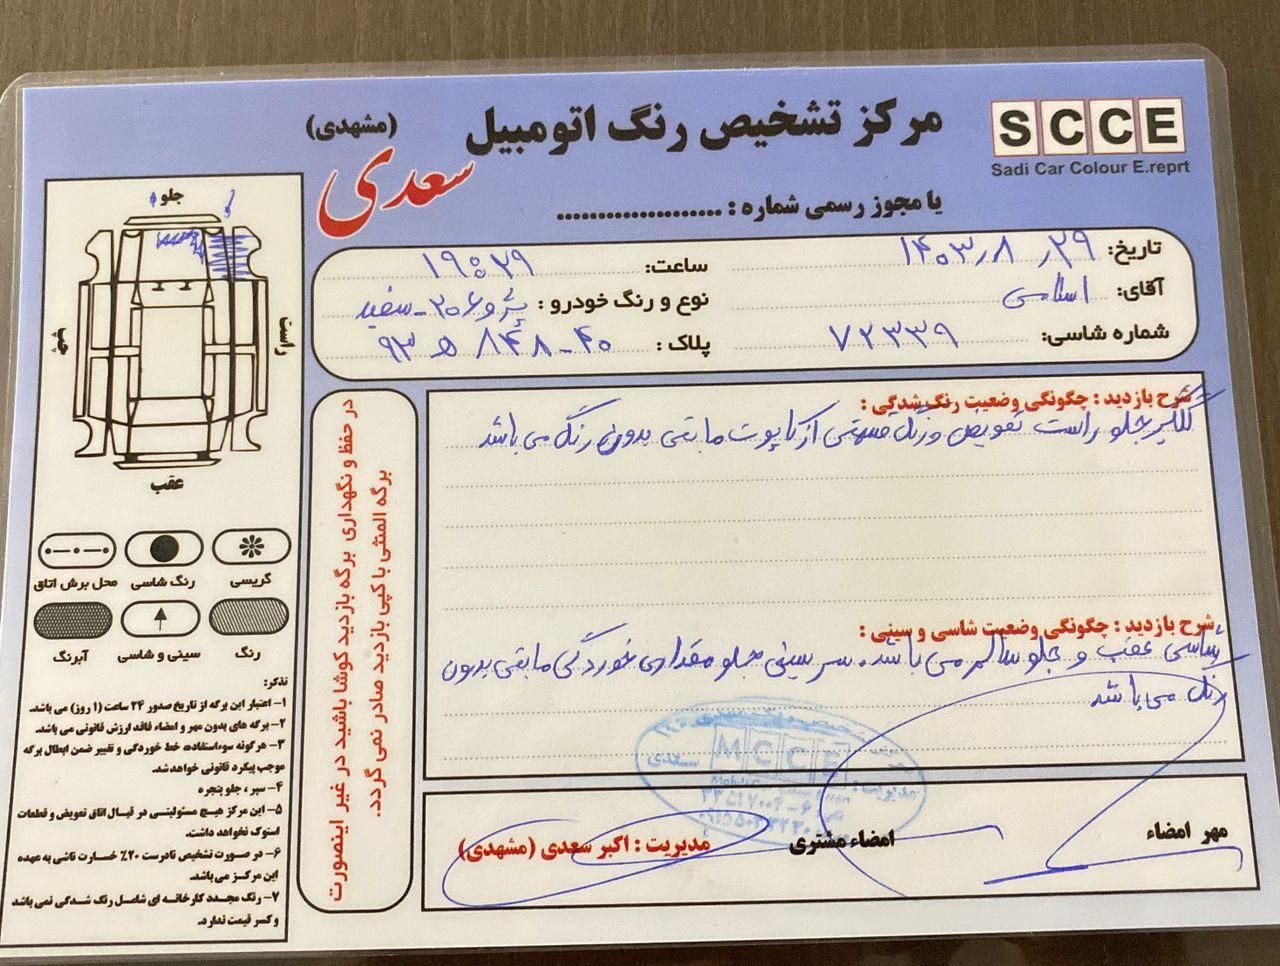 SCCE
Sadi Car Colour E.reprt
مرکز تشخیص رنگ اتومبیل
سعدی
(مشهدی)
با مجوز رسمی شماره : ....................
تاریخ: ۱۴۰۳٫۸٫۲۹
ساعت: ۱۹:۲۹
آقای: اسلامی
نوع و رنگ خودرو : پژو ۲۰۶ - سفید
شماره شاسی: ۷۲۳۳۹
پلاک : ۹۳ ه ۸۴۸ - ۴۰
شرح بازدید : چگونگی وضعیت رنگ شدگی :
گلگیر جلو راست تعویض و رنگ قسمتی از کاپوت مابقی بدون رنگ می باشد
شرح بازدید : چگونگی وضعیت شاسی و سینی :
شاسی عقب و جلو سالم می باشد. سر سینی جلو مقداری خوردگی مابقی بدون
رنگ می باشد
مهر امضاء
امضاء مشتری
مدیریت : اکبر سعدی (مشهدی)
MCCE
سعدی
مدیریت :
در حفظ و نگهداری برگه بازدید کوشا باشید در غیر اینصورت
برگه المثنی یا کپی بازدید صادر نمی گردد.
جلو
راست
چپ
عقب
گریسی
رنگ شاسی
محل برش اتاق
رنگ
سینی و شاسی
آبرنگ
تذکر:
۱- اعتبار این برگه از تاریخ صدور ۲۴ ساعت (۱ روز) می باشد.
۲- برگه های بدون مهر و امضاء فاقد ارزش قانونی می باشد.
۳- هرگونه سوءاستفاده، خط خوردگی و تغییر ضمن ابطال برگه
موجب پیگرد قانونی خواهد شد.
۴- سپر ، جلو پنجره
۵- این مرکز هیچ مسئولیتی در قبال اتاق تعویض و قطعات
استوک نخواهد داشت.
۶- در صورت تشخیص نادرست ۲۰٪ خسارت ناشی به عهده
این مرکز می باشد.
۷- رنگ مجدد کارخانه ای شامل رنگ شدگی نمی باشد
و کسر قیمت ندارد.